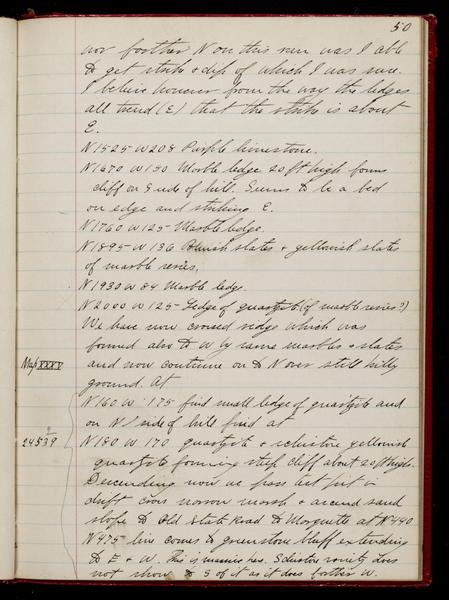 50
nor farther N on this run was I able
to get strike & dip of which I was sure.
I believe however from the way the ledges
all trend (E) that the strike is about
E.
N 1525 W 208 Purple limestone.
N 1670 W 150 Marble ledge 20 ft high forms
cliff on S side of hill. Seems to be a bed
on edge and striking E.
N 1760 W 125 Marble ledge.
N 1895 W 136 slates & yellowish slates
of marble series.
N 1930 W 84 Marble ledge.
N 2000 W 125 Ledge of quartzite (of marble series?)
We have now crossed ridge which was
formed also to W by same marbles & slates
Map XXXV
and now continue on to N over still hilly
ground. At
N 160 W 175 find small ledge of quartzite and
on N side of hill find at
24539
N 180 W 170 quartzite & schistose yellowish
quartzite forming steep cliff about 20 ft high.
Descending now we pass
drift cross narrow marsh & ascend sand
slope to Old State Road to Marquette at N 440
N 475 line comes to greenstone bluff extending
to E & W. This is massive here. Schistose variety does
not show to S of it as it does farther W.